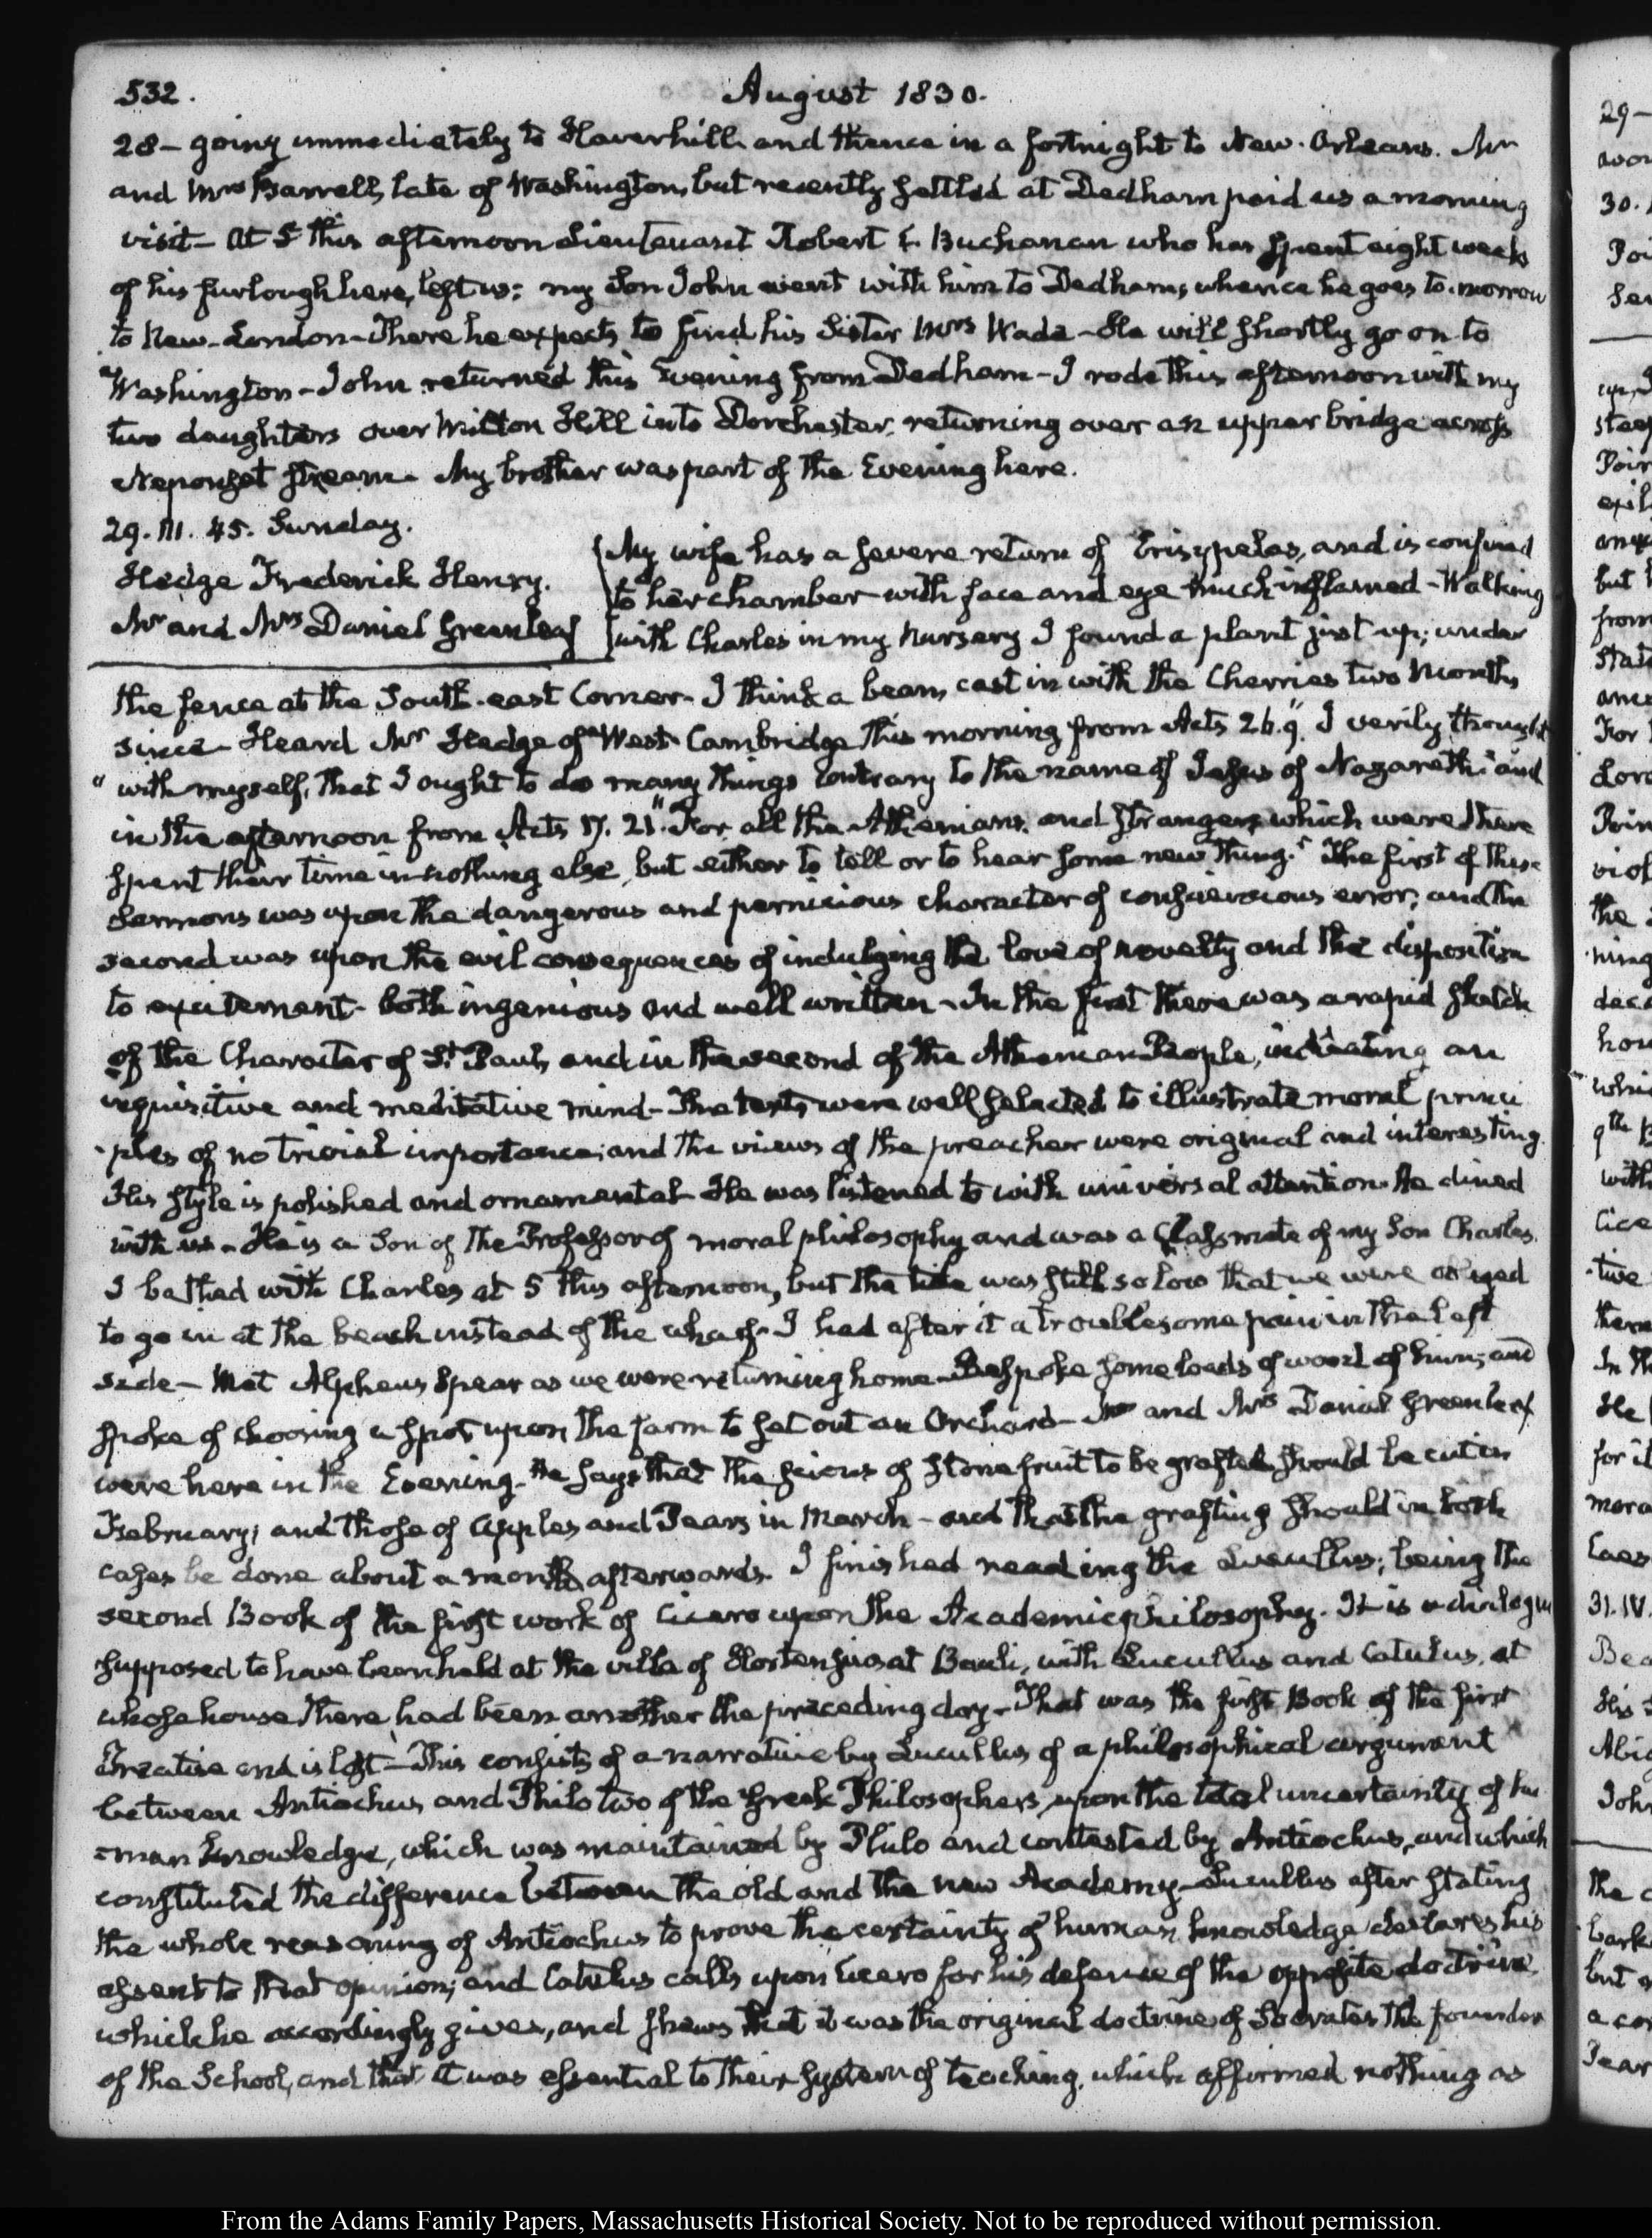 532.
August 1830.
28 – going immediately to Haverhill and thence in a fortnight to New-Orleans. Mr
and Mrs Barrell, late of Washington, but recently settled at Dedham paid us a morning
visit – At 5 this afternoon Lieutenant Robert C. Buchanan who has spent eight weeks
of his furlough here, left us: my Son John went with him to Dedham, whence he goes to-morrow
to New-London – There he expects to find his Sister Mrs Wade – He will shortly go on to
Washington – John returned this Evening from Dedham – I rode this afternoon with my
two daughters over Milton Hill into Dorchester, returning over an upper bridge across
Neponset stream. My brother was part of the Evening here.
29. III. 45. Sunday.
Hedge Frederick Henry.
Mr and Mrs Daniel Greenleaf
My wife has a severe return of Erisypelas, and is confined
to her chamber with face and eye much inflamed – Walking
with Charles in my Nursery I found a plant just up; under
the fence at the South-east Corner – I think a bean, cast in with the Cherries two Months
since – Heard Mr Hedge of West Cambridge this morning from Acts 26. 9. "I verily thought
"with myself, that I ought to do many things contrary to the name of Jesus of Nazareth" and
in the afternoon from Acts 17. 21. "For all the Athenians, and strangers which were there
spent their time in nothing else, but either to tell or to hear some new thing." The first of these
Sermons was upon the dangerous and pernicious character of conscientious error; and the
second was upon the evil consequences of indulging the love of novelty and the disposition
to excitement – both ingenious and well written – In the first there was a rapid sketch
of the Character of St. Paul, and in the second of the Athenian People, indicating an
inquisitive and meditative mind – The texts were well selected to illustrate moral princi
-ples of no trivial importance; and the views of the preacher were original and interesting.
His style is polished and ornamental – He was listened to with universal attention. He dined
with us – He is a Son of the Professor of moral philosophy and was a Classmate of my Son Charles.
I bathed with Charles at 5 this afternoon, but the tide was still so low that we were obliged
to go in at the beach instead of the wharf – I had after it a troublesome pain in the left
side – Met Alpheus Spear as we were returning home – Bespoke some loads of wood of him; and
spoke of choosing a spot upon the farm to set out an Orchard – Mr and Mrs Daniel Greenleaf
were here in the Evening – He says that the scions of stone fruit to be grafted should be cut in
February; and those of Apples and Pears in March – and that the grafting should in both
cases be done about a month afterwards. I finished reading the Lucullus; being the
second Book of the first work of Cicero upon the Academic philosophy. It is a dialogue
supposed to have been held at the villa of Hortensius at Bauli, with Lucullus and Catulus, at
whose house there had been another the preceding day – That was the first Book of the first
Treatise and is lost – This consists of a narrative by Lucullus of a philosophical argument
between Antiochus and Philo two of the Greek Philosophers, upon the total uncertainty of hu
-man knowledge, which was maintained by Philo and contested by Antiochus, and which
constituted the difference between the old and the new Academy – Lucullus after stating
the whole reasoning of Antiochus to prove the certainty of human knowledge declares his
assent to that opinion; and Catulus calls upon Cicero for his defence of the opposite doctrine,
which he accordingly gives, and shews that it was the original doctrine of Socrates the founder
of the School, and that it was essential to their system of teaching, which affirmed nothing as
From the Adams Family Papers, Massachusetts Historical Society. Not to be reproduced without permission.